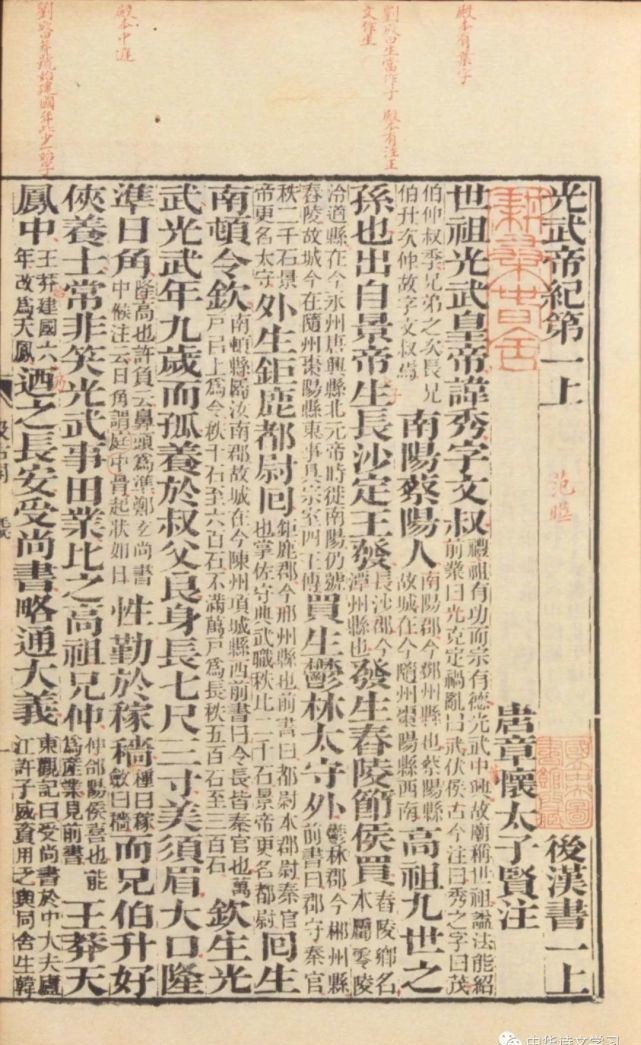 殿本有葉字
劉攽曰生當作子 殿本有注正
文作生
光武帝紀第一上
范曄
後漢書一上
唐章懷太子賢注
世祖光武皇帝諱秀字文叔
禮祖有功而宗有德光武中興故廟稱世祖謚法能紹
前業曰光克定禍亂曰武伏侯古今注曰秀之字曰茂
伯仲叔季兄弟之次長兄
伯升次仲故字文叔焉
南陽蔡陽人
南陽郡今鄧州縣也蔡陽縣
故城在今隨州棗陽縣西南
高祖九世之
孫也出自景帝生長沙定王發
長沙郡今
潭州縣也
發生舂陵節侯買
舂陵鄉名
本屬零陵
泠道縣在今永州唐興縣北元帝時徙南陽仍號
舂陵故城今在隨州棗陽縣東事具宗室四王傳
買生鬱林太守外
鬱林郡今郴州縣
前書曰郡守秦官
秩二千石景
帝更名太守
外生鉅鹿都尉囘
鉅鹿郡今邢州縣也前書曰都尉本郡尉秦官
也掌佐守典武職秩比二千石景帝更名都尉
囘生
南頓令欽
南頓縣屬汝南郡故城在今陳州項城縣西前書曰令長皆秦官也萬
戶已上爲令秩千石至六百石不滿萬戶爲長秩五百石至三百石
欽生光
武光武年九歲而孤養於叔父良身長七尺三寸美須眉大口隆
準日角
隆高也許負云鼻頭爲準鄭玄尚書
中候注云日角謂庭中骨起狀如日
性勤於稼穡
種曰稼
斂曰穡
而兄伯升好
俠養士常非笑光武事田業比之高祖兄仲
仲郃陽侯喜也能
爲產業見前書
王莽天
鳳中
王莽建國六
年改爲天鳳
迺之長安受尚書略通大義
東觀記曰受尚書於中大夫廬
江許子威資用乏與同舍生韓
中华诗文学习